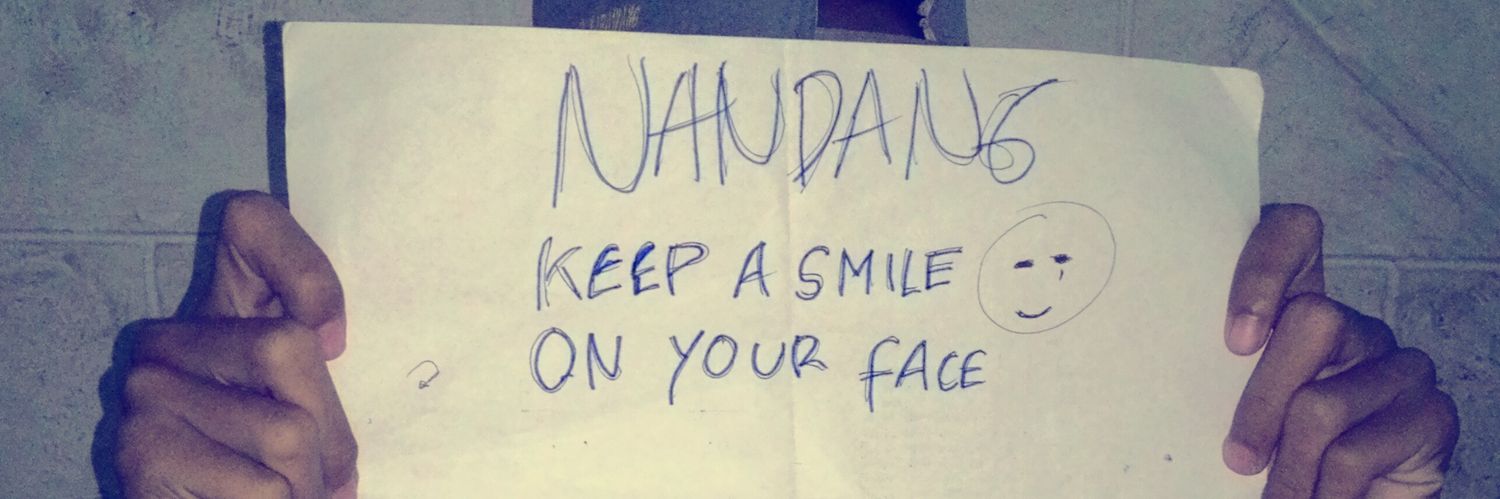 NANDANG
KEEP A SMILE
ON YOUR FACE